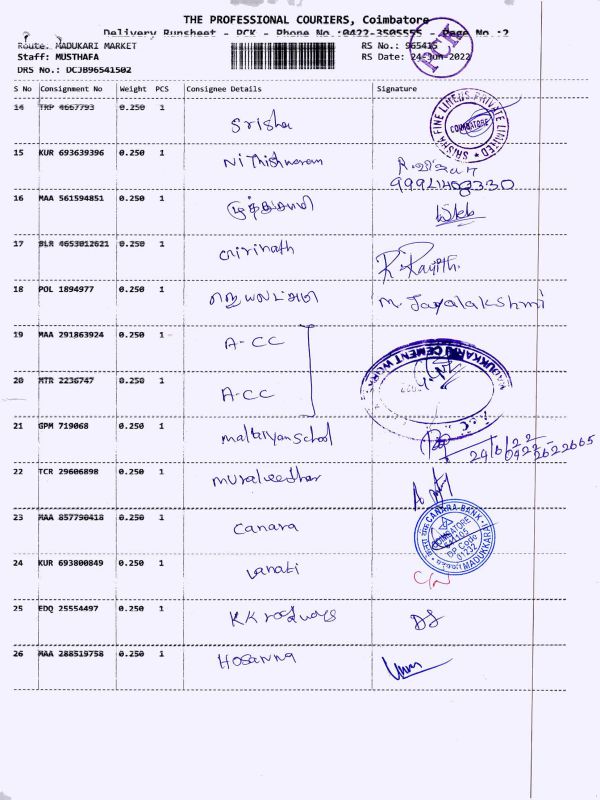 THE PROFESSIONAL COURIERS, Coimbatore
Delivery Runsheet - PCK - Phone No.:0422-3505555 - Page No.:2
Route: MADUKARI MARKET RS No.: 965415
Staff: MUSTHAFA RS Date: 24-Jun-2022
DRS No.: DCJB96541502
PCK
S No Consignment No Weight PCS Consignee Details Signature
14 TRP 4667793 0.250 1 Srisha
SRISHA FINE LINEUS PRIVATE LIMITED COIMBATORE
15 KUR 693639396 0.250 1 Nithishwaram
16 MAA 561594851 0.250 1
17 BLR 4653012621 0.250 1 Girinath R. Rayith.
18 POL 1894977 0.250 1 M. Jayalakshmi
19 MAA 291863924 0.250 1 A-CC
MADUKKARAI CEMENT WORKS
20 MTR 2236747 0.250 1 A-CC
21 GPM 719068 0.250 1 school
24/6/22
0422-2622665
22 TCR 29606898 0.250 1 muraleedhar
23 MAA 857790418 0.250 1 Canara
CANARA BANK COIMBATORE 641105 DP Code 01232 MADUKKARAI
24 KUR 693800849 0.250 1 vanati
25 EDQ 25554497 0.250 1 KK roadways DS
26 MAA 288519758 0.250 1 Hosanna